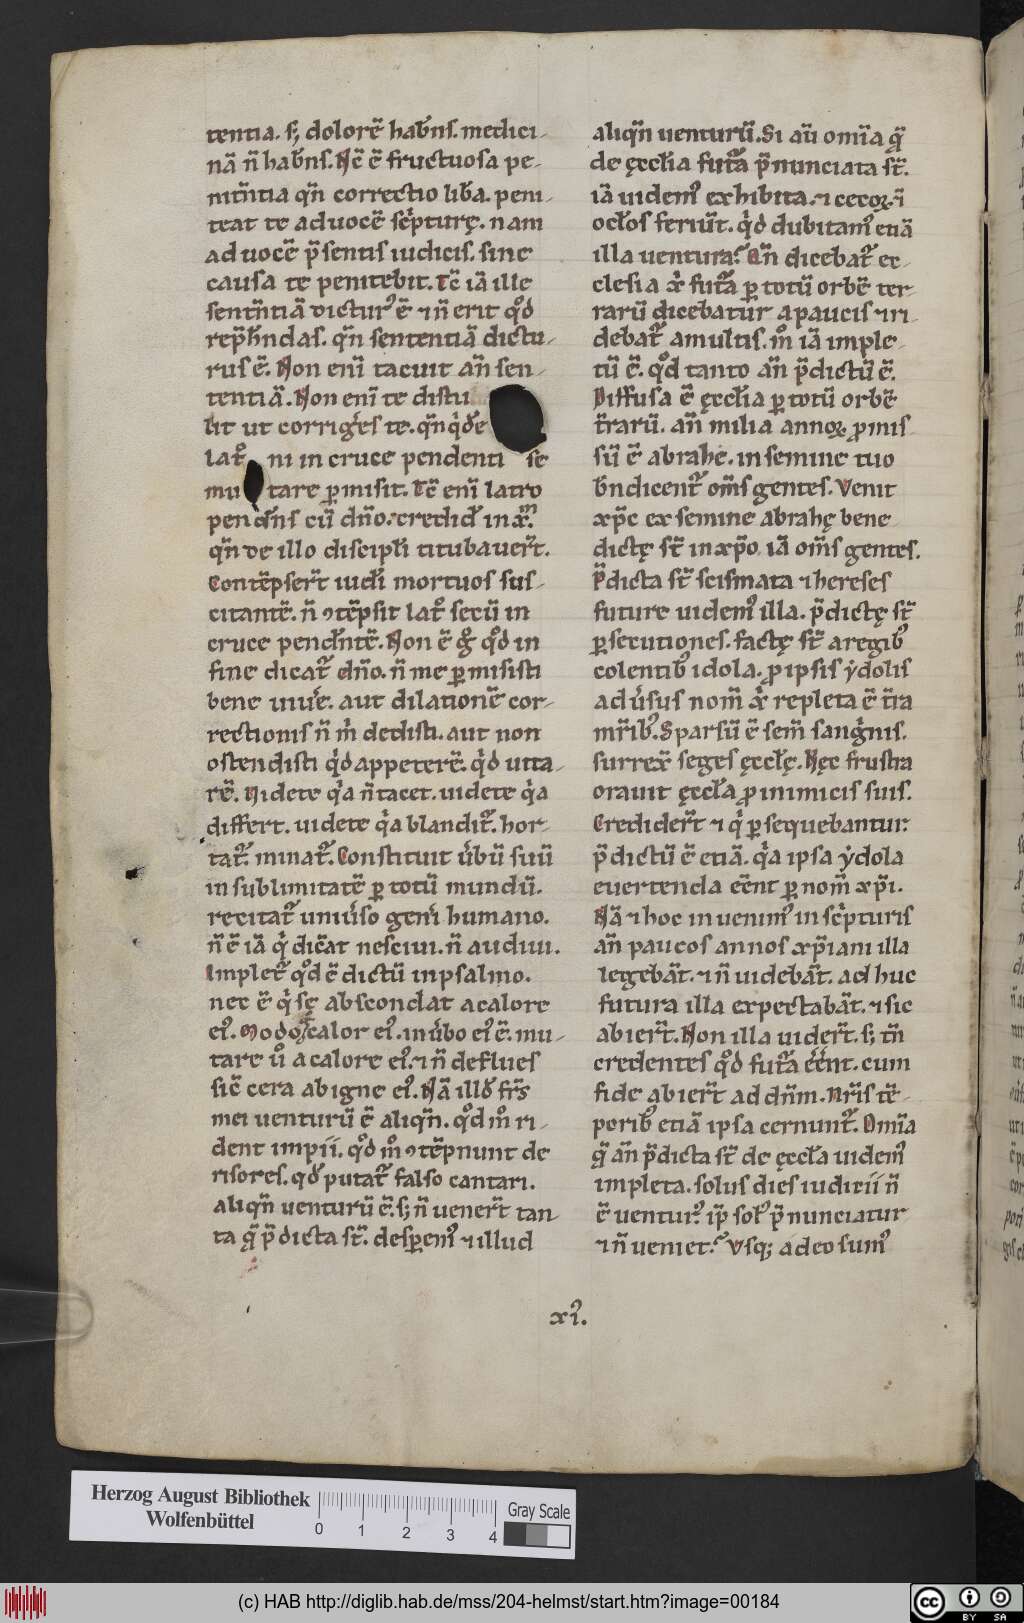 tentia. s; dolorē hab̄ns. medici-
nā n̄ hab̄ns. Nc̄ ē fructuosa pe-
nit̄ntia qn̄ correctio lib̄a. peni-
teat te ad uocē sc̄pturę. nam
ad uocē p̄sentis iudicis. sine
causa te penitebit. Tc̄ iā ille
sent̄ntiā dictur᾿ ē ⁊ n̄ erit qͦd
rep̄h̄ndas. qn̄ sententiā dictu-
rus ē. Non eni᷑ tacuit an̄ sen-
tentiā. Non eni᷑ te distu
lit ut corrigͤes te. qn̄ qͥd̄e
latͦ ni in cruce pendenti se
mu tare p̱misit. Tc̄ eni᷑ latro
pend̄ns cū dn̄o. credid̄ in xp̄m.
qn̄ de illo discipl̄i titubauer̄t.
Contēpser̄t iud̄i mortuos sus-
citantē. n̄ ꝯtēpsit latͦ secū in
cruce pend̄ntē. Non ē gͦ qͦd in
fine dicat᷑ dn̄o. n̄ me p̱misisti
bene uiuͤe. aut dilationē cor-
rectionis n̄ mͥ dedisti. aut non
ostendisti qͥd appeterē. qͥd uita-
rē. Videte qͥa n̄ tacet. uidete qͥa
differt. uidete qͥa blandit᷑. hor-
tat᷑. minat᷑. Constituit ūbū suū
in sublimitatē p̱ totū mundū.
recitat᷑ uniūso geni humano.
n̄ ē iā qͥ dic̄at nesciui. n̄ audiui.
Implet᷑ qͦd ē dictū in psalmo.
nec ē qͥ sę abscondat a calore
ei᾿. Modo calor ei᾿. in ūbo ei᾿ ē. mu-
tare ūͦ a calore ei᾿. ⁊ n̄ defluēs
sic̄ cera ab igne ei᾿. Nā illd̄ fr̄s
mei uenturū ē aliqn̄. qͦd mͦ ri-
dent impii. qͦd mͦ ꝯtēpnunt de
risores. qd̄ putat᷑ falso cantari.
aliqn̄ uenturū ē. s; n̄ uener̄t tan
ta q̄ p̄dicta st̄. desp̱em᾿ ⁊ illud
aliqn̄ uenturū. Si aū omīa q̄
de ęccl̄ia fut᷑a p̄nunciata st̄.
iā uidem᾿ exhibita. ⁊ cecoꝝ. ⁊
ocl̄os feriūt. qͥd dubitam᾿ etiā
illa uentura? Qn̄ dicebat᷑ ec-
clesia xͥ fut᷑a p̱ totū orbē ter-
rarū dicebatur a paucis ⁊ iri-
debat᷑ a multis. mͦ iā imple-
tū ē. qͦd tanto an̄ p̄dictū ē.
Diffusa ē ęccl̄ia p̱ totū orbē
t̄rarū. an̄ milia annoꝝ ꝓmis-
sū ē abrahe. in semine tuo
bn̄dicent᷑ om̄s gentes. Venit
xp̄c ex semine abrahę bene
dictę st̄ in xp̄o. iā om̄s gentes.
P̄dicta st̄ scismata ⁊ hereses
future uidem᾿ illa. p̄dictę st̄
p̱secutiones. factę st̄ a regib᾿
colentib᾿ idola. ꝓ ipsis ydolis
adūsus nom̄ xͥ repleta ē t̄ra
mr̄ib᾿. Sparsū ē sem̄ sangͥnis.
surrex̄ seges ęccl̄ę. Nęc frustra
orauit ęccl̄a ꝓ inimicis suis.
Crediderr̄t ⁊ qͥ p̱sequebantur.
p̄dictū ē etiā. qͥa ipsa ydola
euertenda ēent p̱ nom̄ xp̄i.
Nā ⁊ hoc inuenim᾿ in sc̄pturis
an̄ paucos annos xp̄iani illa
legebāt. ⁊ n̄ uidebāt. adhuc
futura illa expectabāt. ⁊ sic
abier̄t. Non illa uider̄t. s; tn̄
credentes qͦd fut᷑a ēent. cum
fide abier̄t ad dn̄m. Nr̄is tē-
porib᾿ etiā ipsa cernunt᷑. Omīa
q̄ an̄ p̄dicta st̄ de ęccl̄a uidem᾿
impleta. solus dies iudicii n̄
ē uentur᾿. ip̄ sol᾿ p̄nunciatur
⁊ n̄ ueniet? Vsq; adeo sum᾿
xi᾿.
Herzog August Bibliothek
Wolfenbüttel
0 1 2 3 4
Gray Scale
(c) HAB http://diglib.hab.de/mss/204-helmst/start.htm?image=00184
cc BY SA